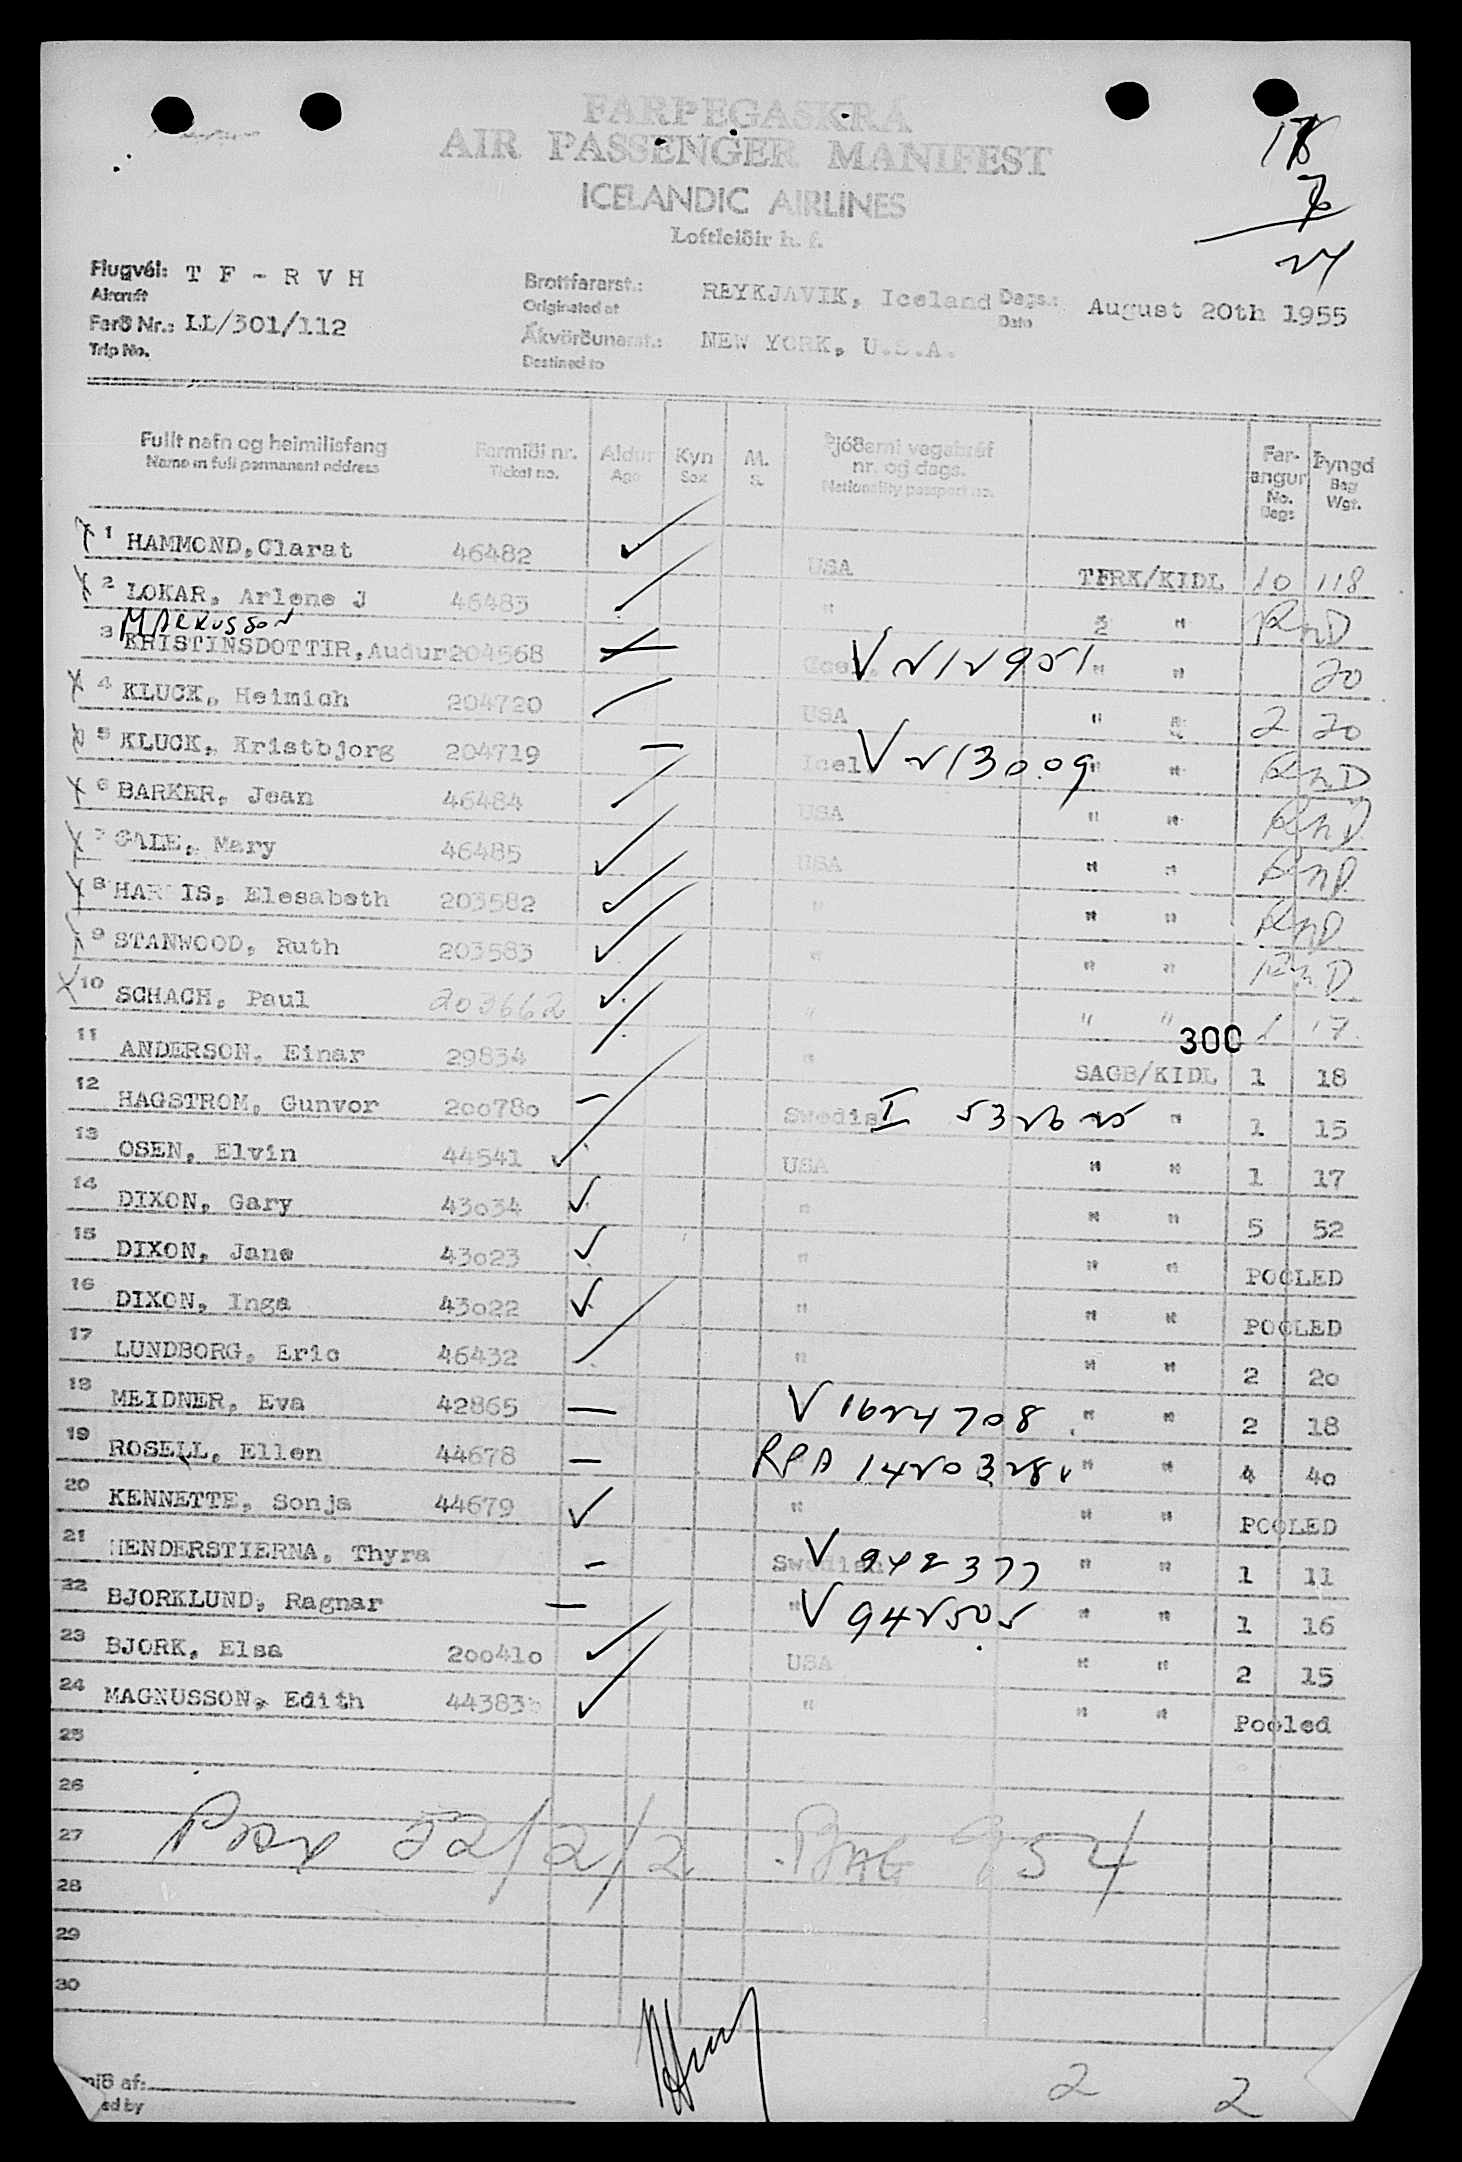 FARÞEGASKRÁ
AIR PASSENGER MANIFEST
ICELANDIC AIRLINES
Loftleiðir h. f.
24
Flugvél: TF-RVH Brottfararst.: REYKJAVIK, Iceland Dags.: August 20th 1955
Aircraft Originated at Date
Ferð Nr.: LL/301/112 Ákvörðunarst.: NEW YORK, U.S.A.
Trip No. Destined to
Fullt nafn og heimilisfang Farmiði nr. Aldur Kyn M. Þjóðerni vegabréf Far- Þyngd
Name in full permanent address Ticket no. Age Sex s. nr. og dags. angur Bag
Nationality passport no. No. Wgt.
Bags
1 HAMMOND, Clarat 46482 USA TFRK/KIDL 10 118
2 LOKAR, Arlene J 46483 " " " PND
MARKUSSON
3 KRISTINSDOTTIR, Audur 204568 Icel. V 212951 " " 20
4 KLUCK, Heinich 204720 USA " " 2 20
5 KLUCK, Kristbjorg 204719 Icel. V 213009 " " PND
6 BARKER, Jean 46484 USA " " PND
7 GALE, Mary 46485 USA " " PND
8 HARRIS, Elesabeth 203582 " " " PND
9 STANWOOD, Ruth 203583 " " " PND
10 SCHACH, Paul 203662 " " " 1 17
300
11 ANDERSON, Einar 29834 " SAGB/KIDL 1 18
12 HAGSTROM, Gunvor 200780 Swedis I 532625 " 1 15
13 OSEN, Elvin 44541 USA " " 1 17
14 DIXON, Gary 43034 " " " 5 52
15 DIXON, Jane 43023 " " " POOLED
16 DIXON, Inga 43022 " " " POOLED
17 LUNDBORG, Eric 46432 " " " 2 20
18 MEIDNER, Eva 42865 V 1624708 " " 2 18
19 ROSELL, Ellen 44678 RPA 1420328 " " 4 40
20 KENNETTE, Sonja 44679 " " " POOLED
21 HENDERSTIERNA, Thyra Swedish V 942377 " " 1 11
22 BJORKLUND, Ragnar " V 942505 " " 1 16
23 BJORK, Elsa 200410 USA " " 2 15
24 MAGNUSSON, Edith 44383 " " " Pooled
25
26
27 Pax 22/2/2 BAG 954
28
29
30
2 2
mið af:
ed by